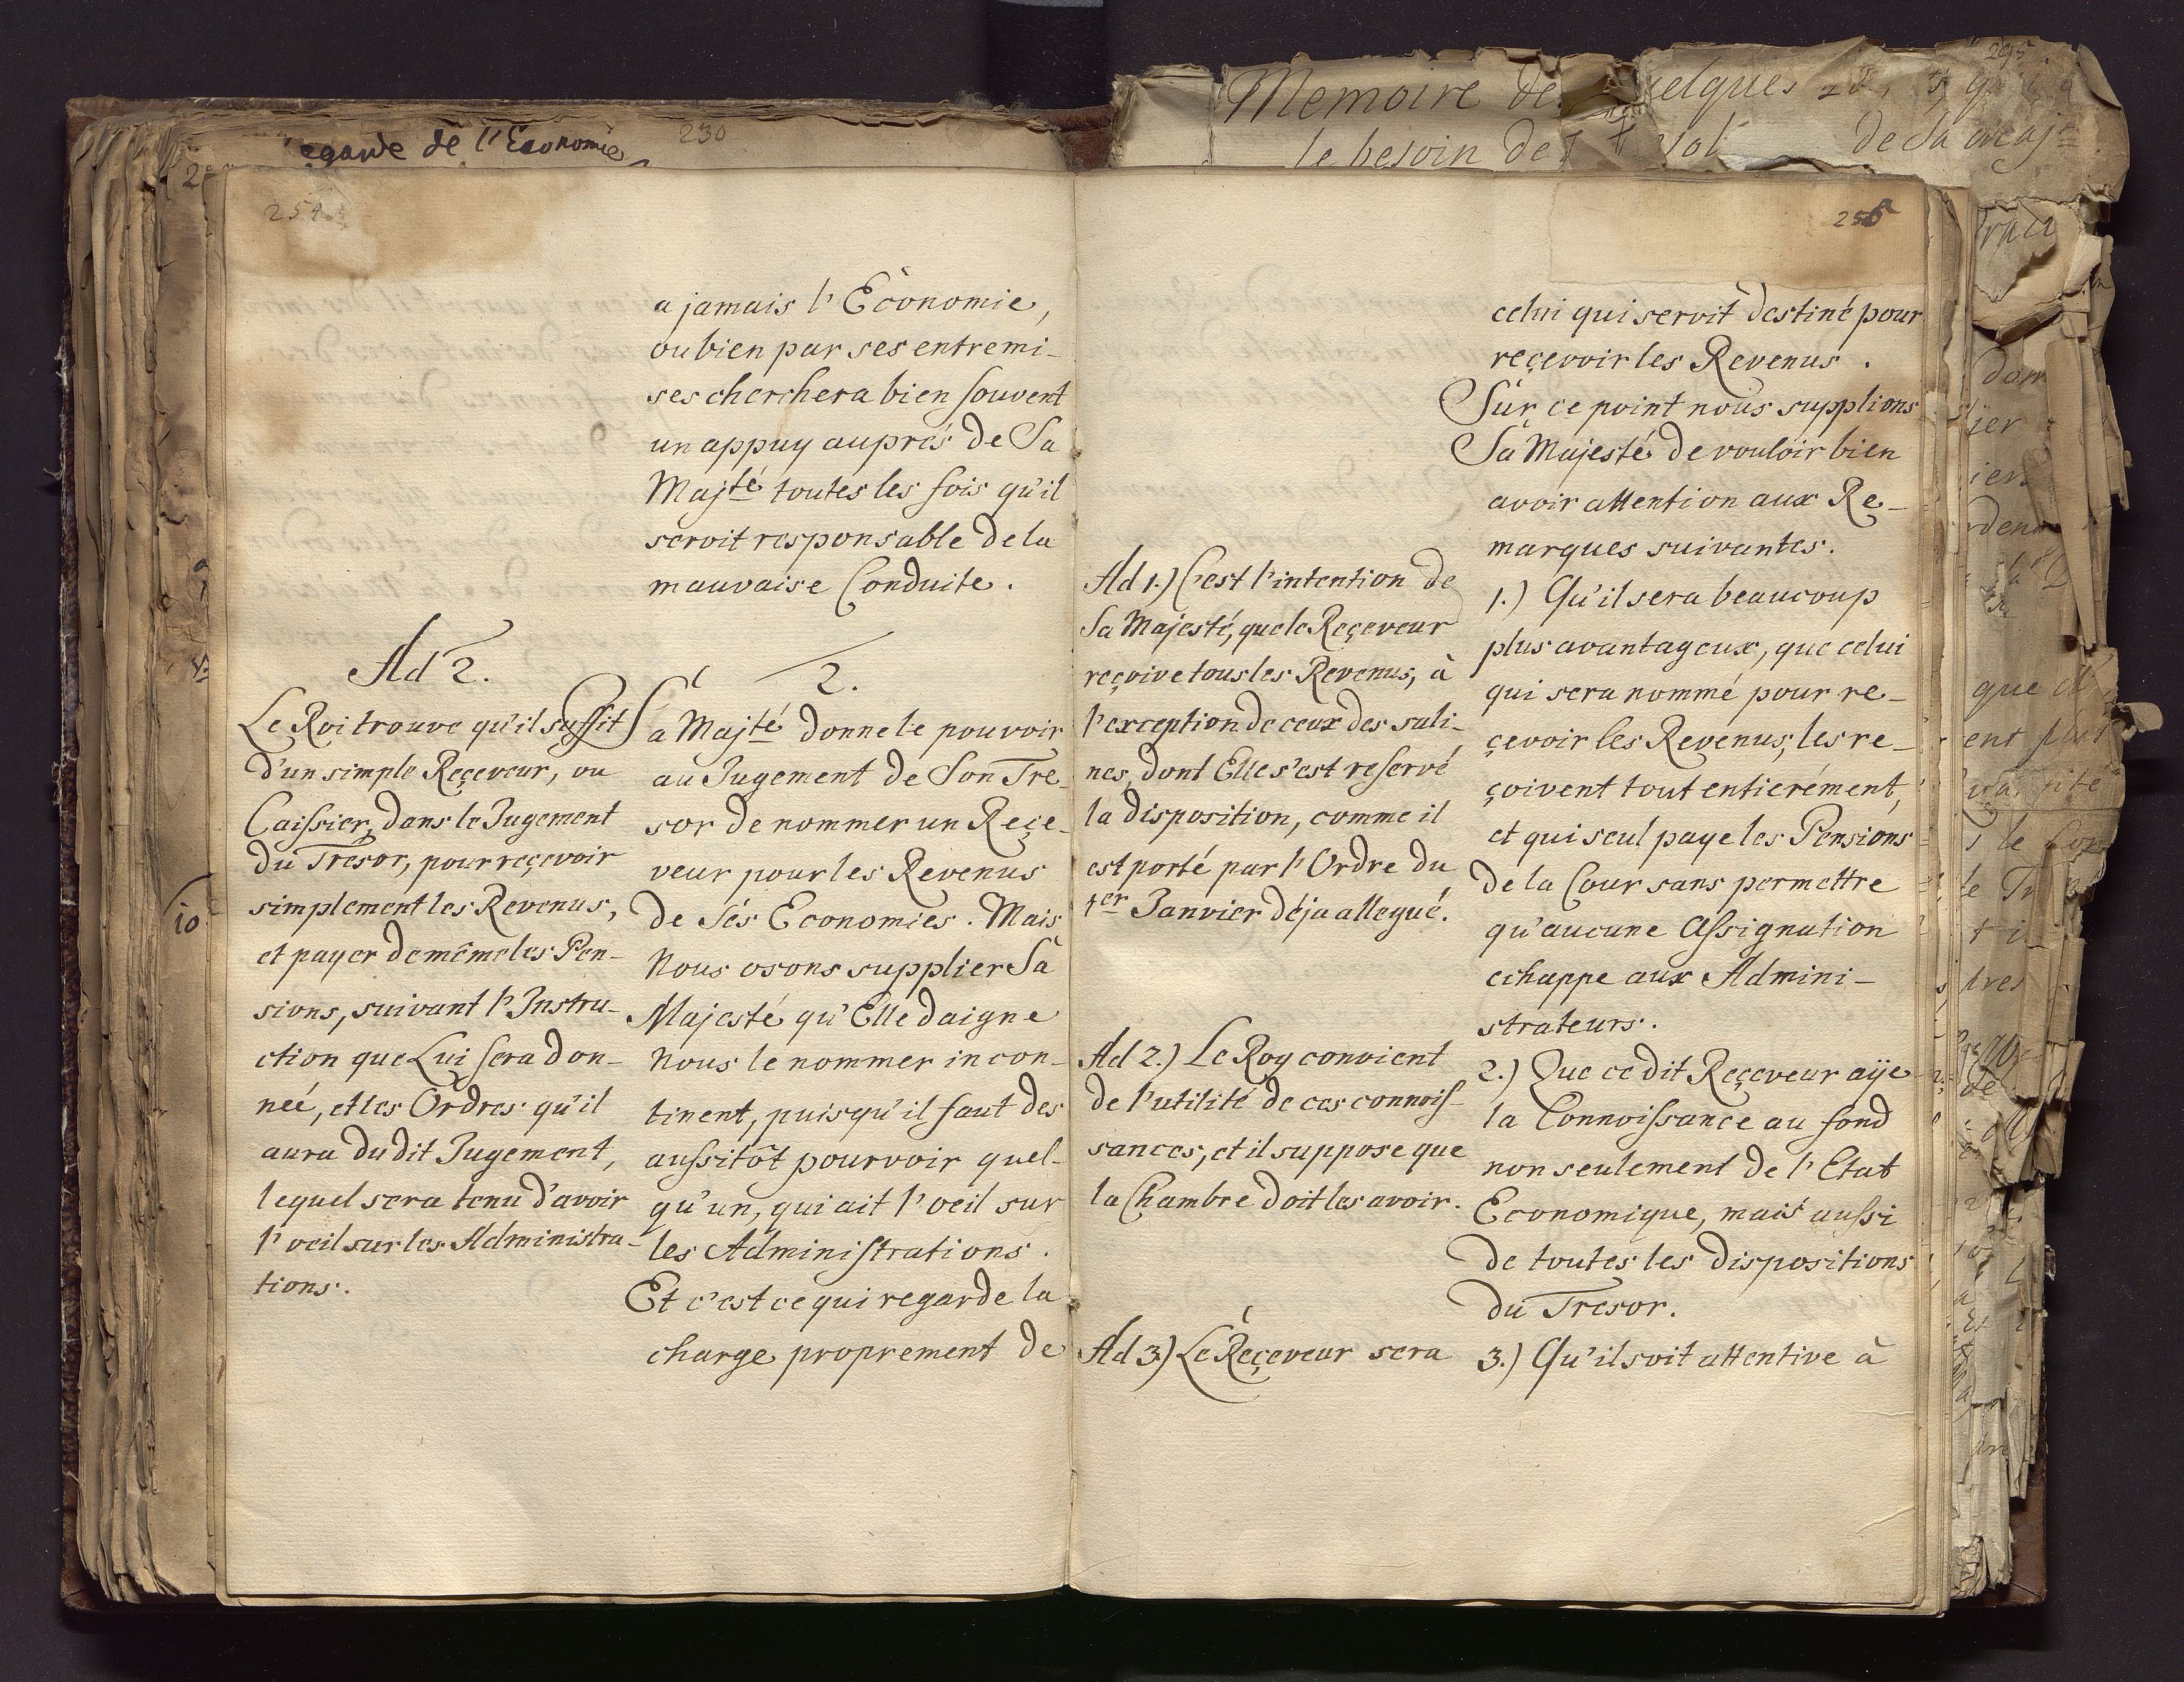 egarde de l'Economie
230
254
a jamais l'Economie,
ou bien par ses entremi-
ses cherchera bien souvent
un appuy auprés de Sa
Majté toutes les fois qu'il
seroit responsable de la
mauvaise Conduite.
Ad 2.
Le Roi trouve qu'il suffit
d'un simple Reçeveur, ou
Caissier, dans le Jugement
du Trésor, pour reçevoir
simplement les Revenus,
et payer de même les Pen-
sions, suivant l'Instru-
ction que Lui sera don-
neé, et les Ordres qu'il
aura du dit Jugement,
lequel sera tenu d'avoir
l'oeil sur les Administra-
tions.
2.
Sa Majté donne le pouvoir
au Jugement de Son Tre-
sor de nommer un Reçe-
veur pour les Revenus
de Ses Economies. Mais
Nous osons supplier Sa
Majesté qu'Elle daigne
Nous le nommer incon-
tinent, puisqu'il faut des
aussitot pourvoir quel-
qu'un, qui ait l'oeil sur
les Administrations.
Et c'est ce qui regarde la
charge proprement de
10
295
Memoire de elques
le besoin de de Sa Majté
Ad 1.) C'est l'intention de
Sa Majesté, que le Reçeveur
reçoive tous les Revenus, à
l'exception de ceux des sali-
nes, dont Elle s'est reservé
la disposition, comme il
est porté par l'Ordre du
1er Janvier déja allegué.
Ad 2.) Le Roy convient
de l'utilité de ces connois-
sances, et il suppose que
la Chambre doit les avoir.
Ad 3.) Le Reçeveur sera
celui qui seroit destiné pour
reçevoir les Revenus.
Sur ce point nous supplions
Sa Majesté de vouloir bien
avoir attention aux Re-
marques suivantes.
1.) Qu'il sera beaucoup
plus avantageux, que celui
qui sera nommé pour re-
çevoir les Revenus, les re-
çoivent tout entierément,
et qui seul paye les Pensions
de la Cour sans permettre
qu'aucune Assignation
echappe aux Admini-
strateurs.
2.) Que ce dit Reçeveur aÿe
la Connoissance au fond
non seulement de l'Etat
Economique, mais aussi
de toutes les dispositions
du Tresor.
3.) Qu'il soit attentive à